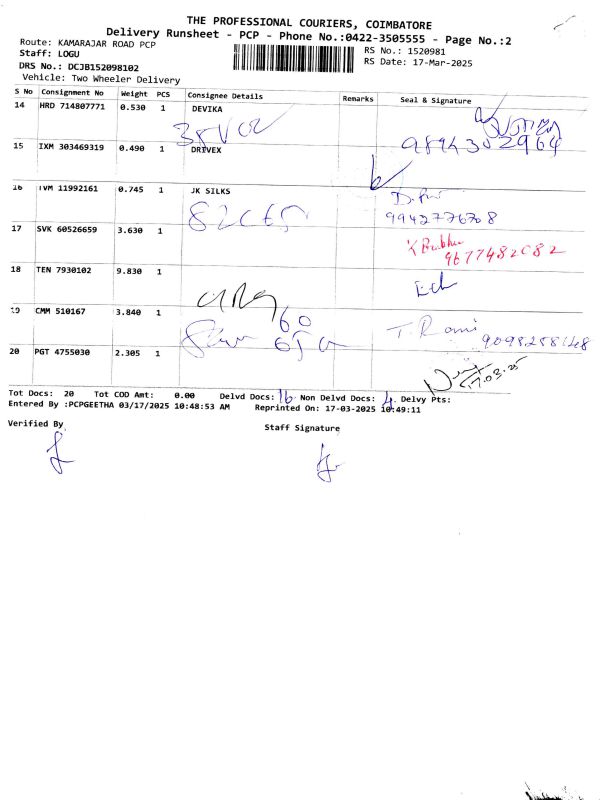 THE PROFESSIONAL COURIERS, COIMBATORE
Delivery Runsheet - PCP - Phone No.:0422-3505555 - Page No.:2
Route: KAMARAJAR ROAD PCP
RS No.: 1520981
Staff: LOGU
RS Date: 17-Mar-2025
DRS No.: DCJB152098102
Vehicle: Two Wheeler Delivery
S No Consignment No Weight PCS Consignee Details Remarks Seal & Signature
14 HRD 714807771 0.530 1 DEVIKA
9894302964
15 IXM 303469319 0.490 1 DRIVEX
16 TVM 11992161 0.745 1 JK SILKS
9942776708
17 SVK 60526659 3.630 1
K Prabhu
9677482082
18 TEN 7930102 9.830 1
19 CMM 510167 3.840 1
60
T. Rami 9098258168
20 PGT 4755030 2.305 1
17.03.25
Tot Docs: 20 Tot COD Amt: 0.00 Delvd Docs: 16 Non Delvd Docs: 4 Delvy Pts:
Entered By :PCPGEETHA 03/17/2025 10:48:53 AM Reprinted On: 17-03-2025 10:49:11
Verified By
Staff Signature